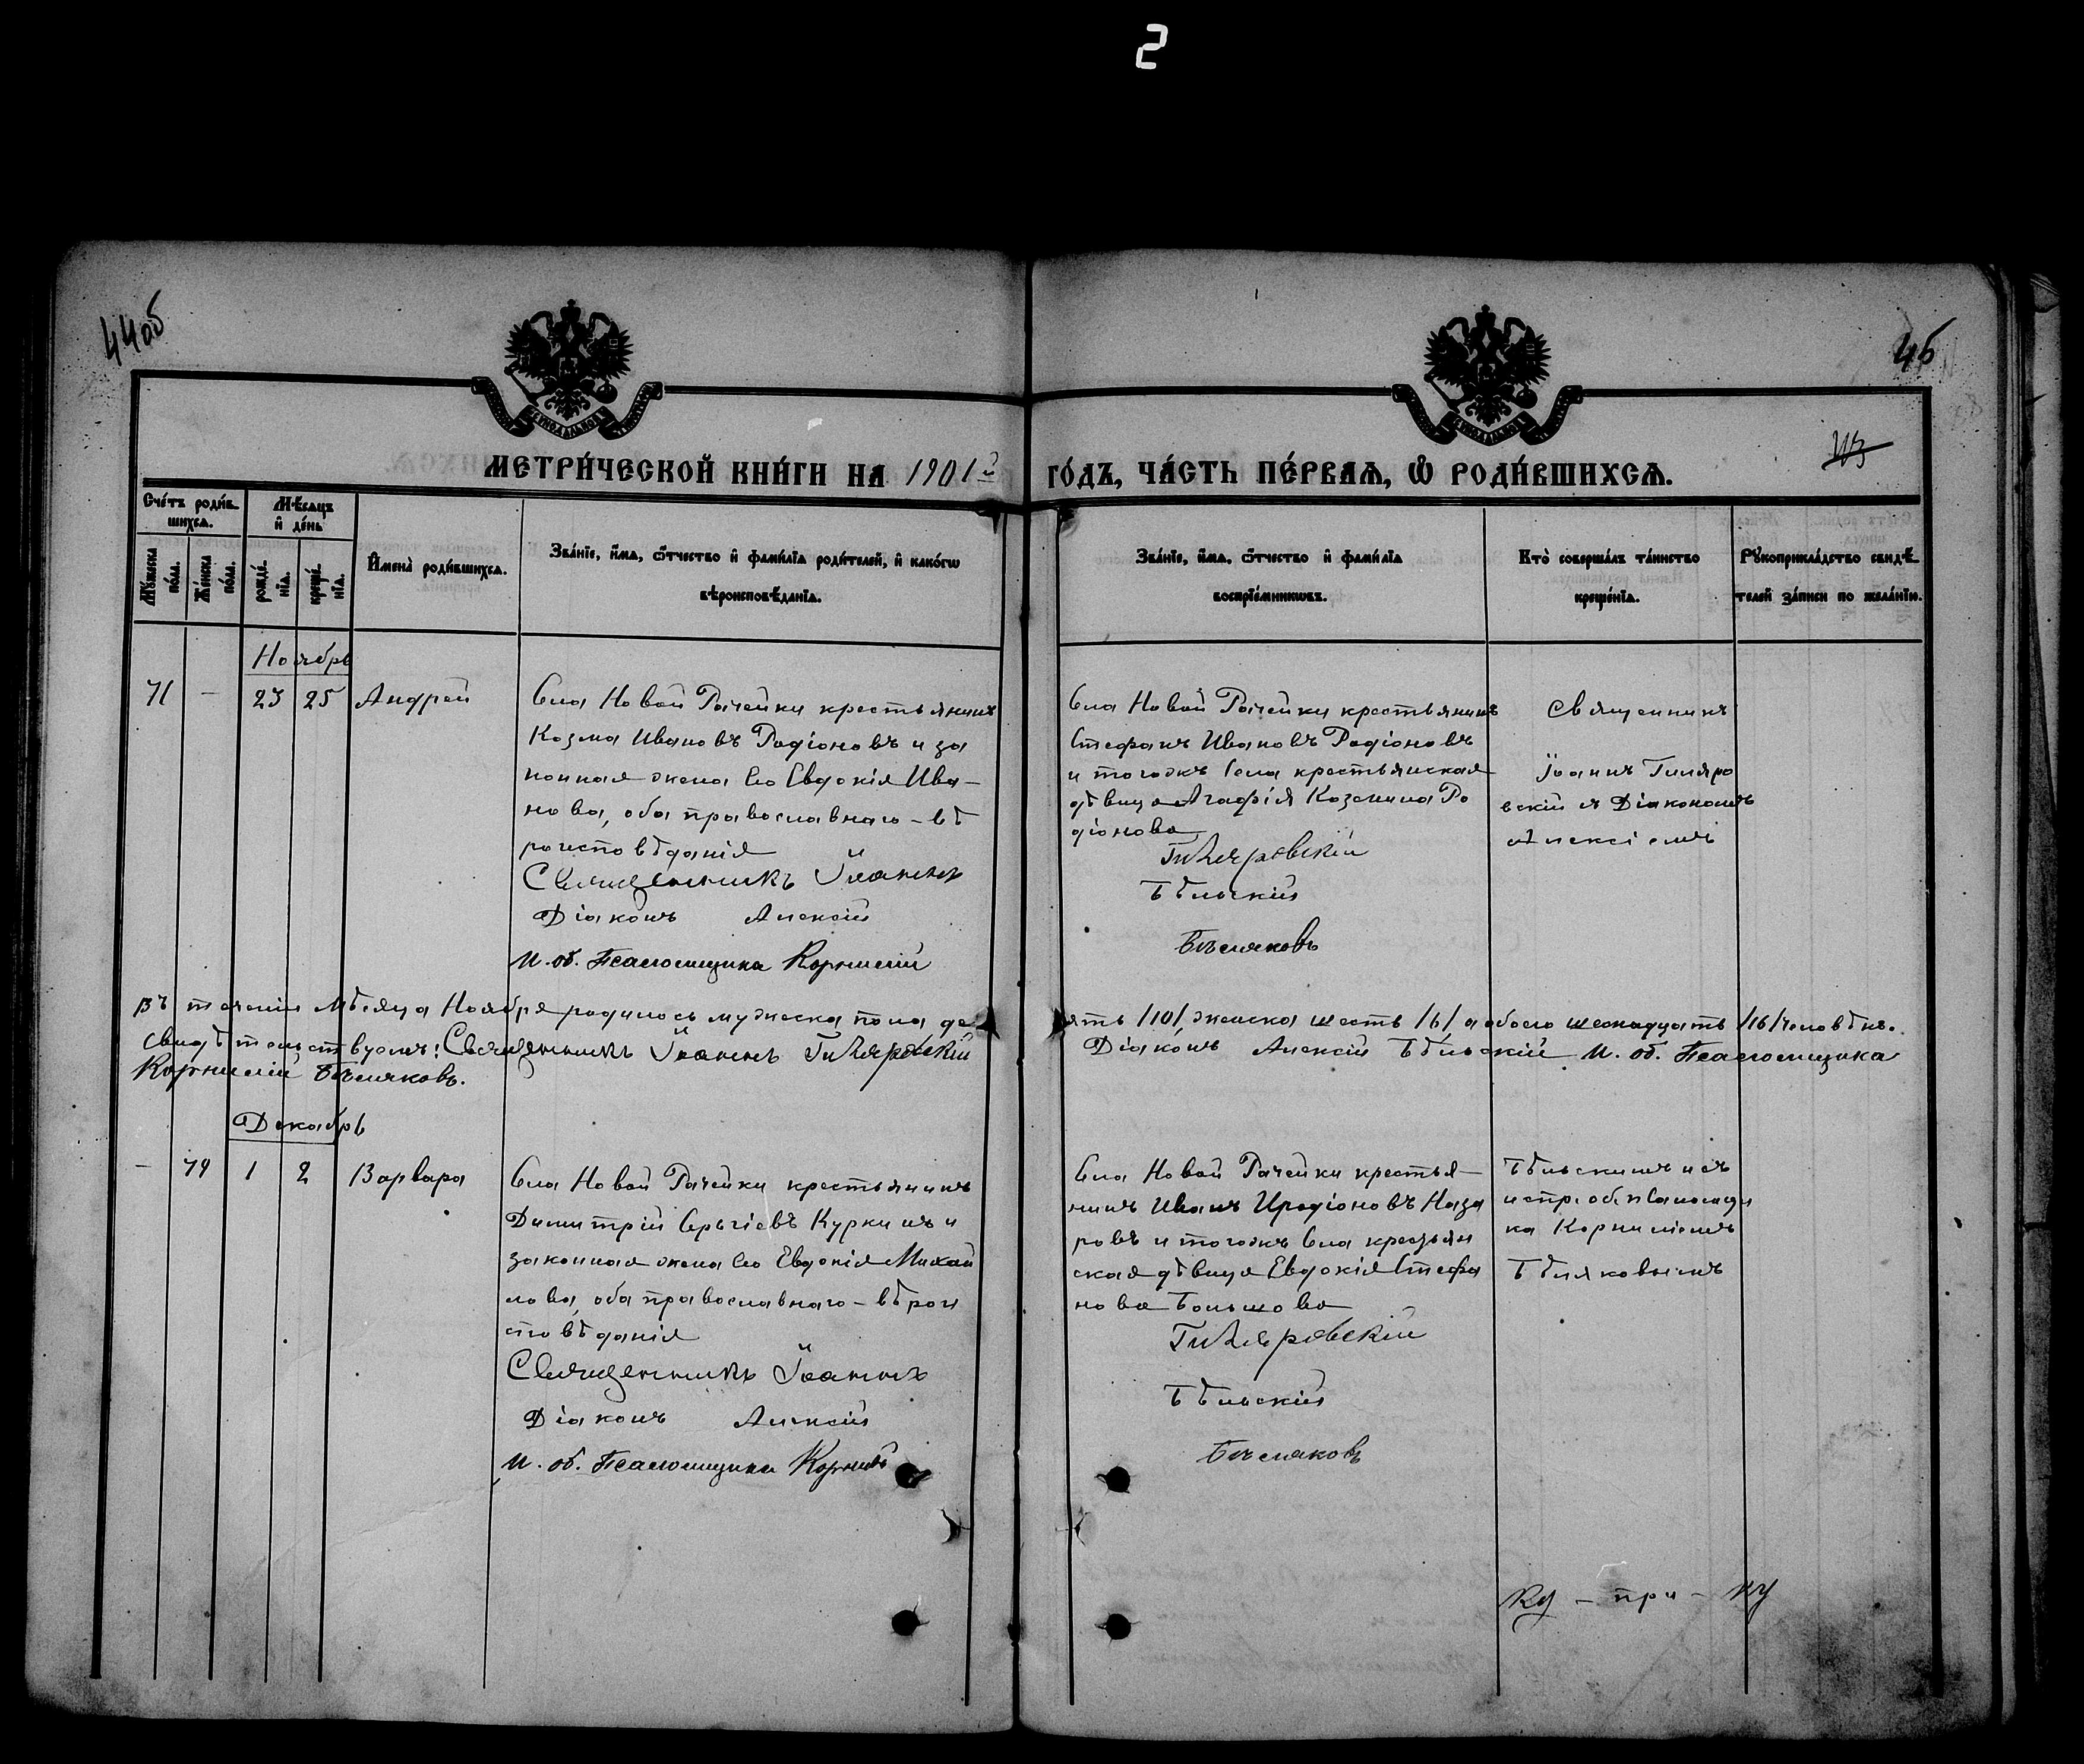 2
44об
45
МЕТРИ́ЧЕСКОЙ КНИ́ГИ НА 1901й ГО́ДЪ, ЧА́СТЬ ПЕ́РВАѦ, Ѡ҆ РОДИ́ВШИХСѦ.
Сче́тъ роди́в-
шихсѧ.
Мѣ́сѧцъ
и҆ де́нь
Мꙋ́жеска
по́ла.
Же́нска
по́ла.
рожде́-
нїѧ.
креще́-
нїѧ.
И҆мена̀ роди́вшихсѧ.
Зва́нїе, и҆́мѧ, ѻ҆́тчество и҆ фами́лїѧ роди́телей, и҆ како́гѡ
вѣроисповѣ́данїѧ.
Зва́нїе, и҆́мѧ, ѻ҆́тчество и҆ фами́лїѧ
воспрїе́мникѡвъ.
Кто̀ соверша́лъ та́инство
креще́нїѧ.
Рꙋкоприкла́дство свидѣ́-
телей за́писи по жела́нїю.
Ноябрь
71 — 23 25 Андрей
Села Новой Рачейки крестьянинъ
Козма Ивановъ Радіоновъ и за
конная жена его Евдокія Ива-
нова, оба православнаго-вѣ
роисповѣданія
Священникъ Іоаннъ
Діаконъ Алексій
И. об. Псаломщика Корнилій
Села Новой Рачейки крестьянинъ
Стефанъ Ивановъ Радіоновъ
и тогожъ села крестьянская
дѣвица Агафія Козмина Ра
діонова
Гиляровскій
Бѣльскій
Бѣляковъ
Священникъ
Іоаннъ Гиляро
вскій съ Діакономъ
Алексіемъ
Въ теченіи мѣсяца Ноября родилось мужеска пола десять /10/ женска шесть /6/ а обоего шестнадцать /16/ человѣкъ.
Свидѣтельствуемъ: Священникъ Іоаннъ Гиляровскій Діаконъ Алексій Бѣльскій И. об. Псаломщика
Корнилій Бѣляковъ.
Декабрь
— 79 1 2 Варвара
Села Новой Рачейки крестьянинъ
Димитрій Сергіевъ Куркинъ и
законная жена его Евдокія Михай
лова, оба православнаго-вѣрои
сповѣданія
Священникъ Іоаннъ
Діаконъ Алексій
И. об. Псаломщика Корнилій
Села Новой Рачейки крестья-
нинъ Иванъ Иродіоновъ Наза
ровъ и тогожъ села крестьян
ская дѣвица Евдокія Стефа
нова Большова
Гиляровскій
Бѣльскій
Бѣляковъ
Бѣльскимъ и съ
испр. об. псаломщи
ка Корниліемъ
Бѣляковымъ
— при —